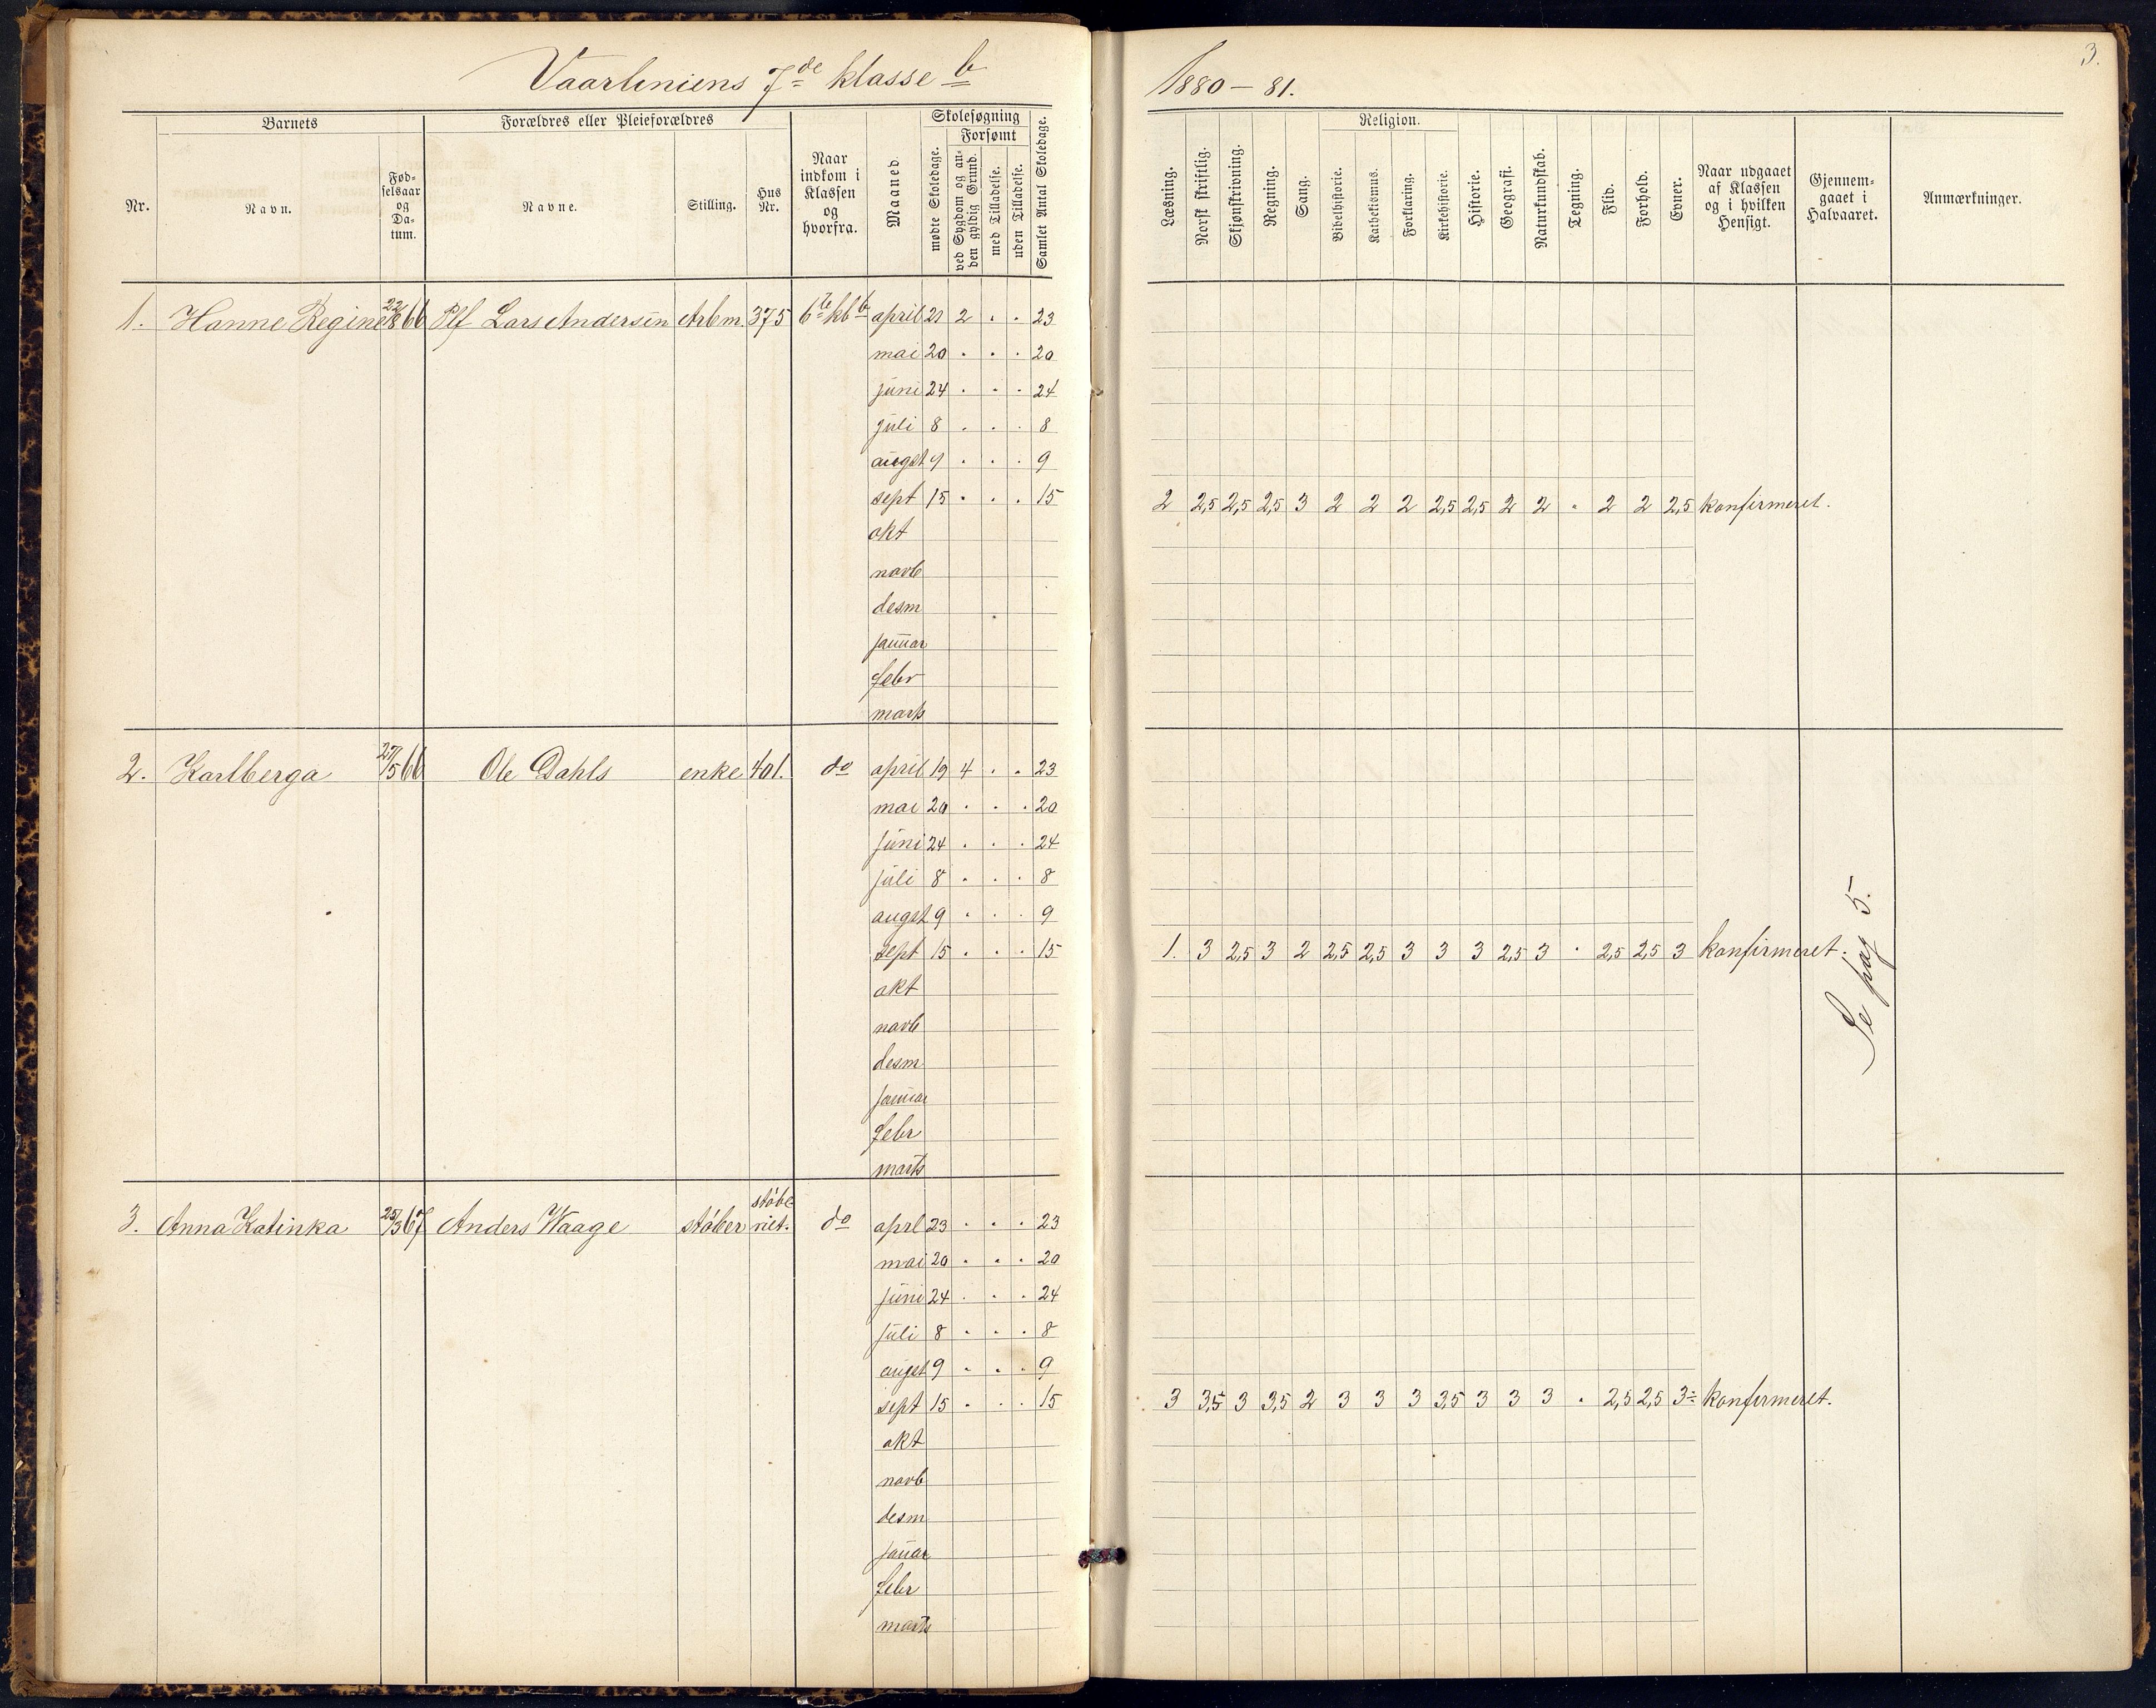 Vaarliniens 7de klasse b
1880 - 81.
3.
Barnets
Forældres eller Pleieforældres
Skolesøgning
Forsømt
Nr.
Navn.
Fødselsaar og Datum.
Navne.
Stilling.
Hus Nr.
Naar indkom i Klassen og hvorfra.
Maaned.
mødte Skoledage.
ved Sygdom og anden gyldig Grund.
med Tilladelse.
uden Tilladelse.
Samlet Antal Skoledage.
Religion.
Læsning.
Norsk skriftlig.
Skjønskrivning.
Regning.
Sang.
Bibelhistorie.
Katbekismus.
Forklaring.
Kirkehistorie.
Historie.
Geografi.
Naturkundskab.
Tegning.
Flid.
Forhold.
Evner.
Naar udgaaet af Klassen og i hvilken Hensigt.
Gjennemgaaet i Halvaaret.
Anmærkninger.
1. Hanne Regine 22/8 66 Plf Lars Andersen Arbm. 375 6te kl b april 21 2 . . 23
mai 20 . . . 20
juni 24 . . . 24
juli 8 . . . 8
augst 9 . . . 9
sept 15 . . . 15 2 2,5 2,5 2,5 3 2 2 2 2,5 2,5 2 2 . 2 2 2,5 konfirmeret.
okt
novb
desm
januar
febr
marts
2. Karlberga 27/5 66 Ole Dahls enke 401. do april 19 4 . . 23
mai 20 . . . 20
juni 24 . . . 24
juli 8 . . . 8
augst 9 . . . 9
sept 15 . . . 15 1. 3 2,5 3 2 2,5 2,5 3 3 3 2,5 3 . 2,5 2,5 3 konfirmeret.
Se pag 5.
okt
novb
desm
januar
febr
marts
3. Anna Katinka 25/3 67 Anders Waage støber støberiet. do aprl 23 . . . 23
mai 20 . . . 20
juni 24 . . . 24
juli 8 . . . 8
augst 9 . . . 9
sept 15 . . . 15 3 3,5 3 3,5 2 3 3 3 3,5 3 3 3 . 2,5 2,5 3÷ konfirmeret.
okt
novb
desm
januar
febr
marts